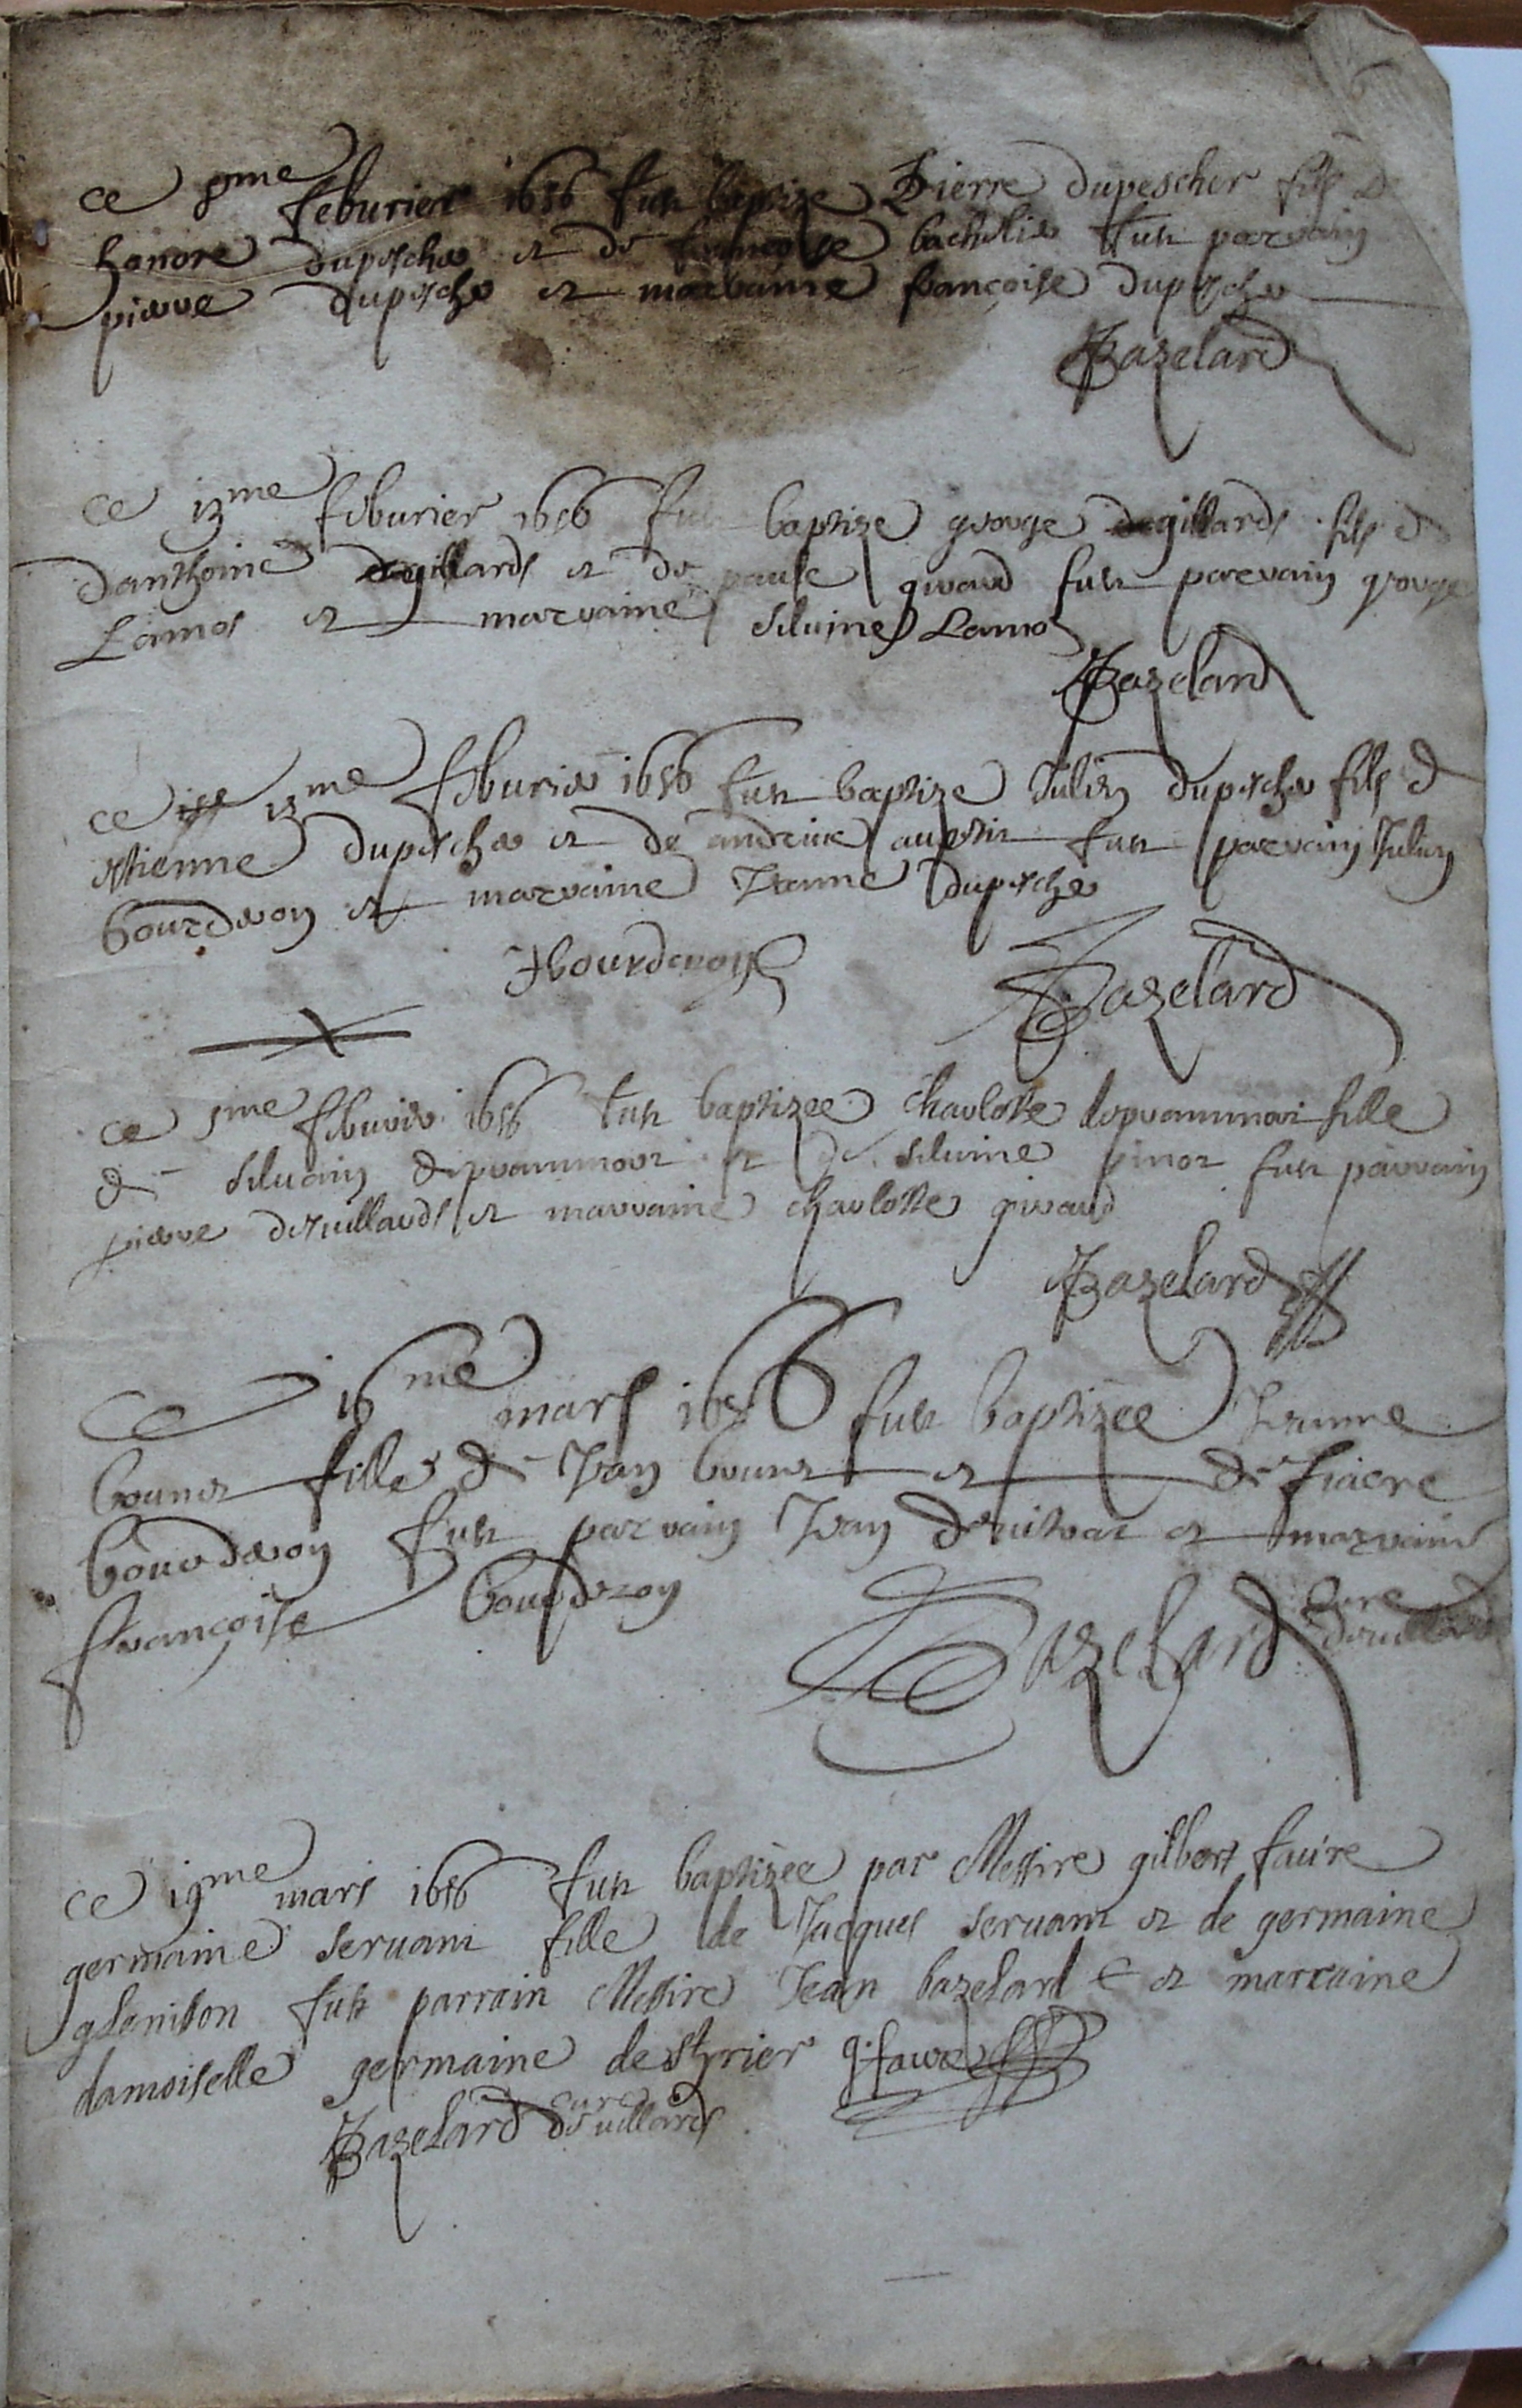 ce 8me feburier 1656 fut baptize Pierre dupescher fils de
honore dupescher et de françoise bachelier fut parrain
pierre dupescher et marraine françoise dupescher
JBazelard
ce 13me feburier 1656 fut baptize george degillards fils
danthoine degillards et de paule giraud fut parrain george
Lamot et marraine siluine Lamot
JBazelard
ce 13me feburier 1656 fut baptize Julien dupescher fils de
etienne dupescher et de andrive fut parrain Julien
bourderon et marraine Jeanne dupescher
Jbourderon
Bazelard
ce feburier 1656 fut baptizee charlotte fille
de siluain et de siluine pinot fut parrain
pierre deuillards et marraine charlotte giraud
JBazelard
Ce 16me mars 1656 fut baptizee Jeanne
fille de Jean et de fiacre
bourderon fut parrain Jean et marraine
françoise bourderon
Bazelard Cure deuillards
ce 19me mars 1656 fut baptizee par Messire gilbert faure
germaine seruant fille de Jacques seruant et de germaine
glenison fut parrain Messire Jean bazelard et marraine
damoiselle germaine de styrier g. faure
JBazelard cure deuillards